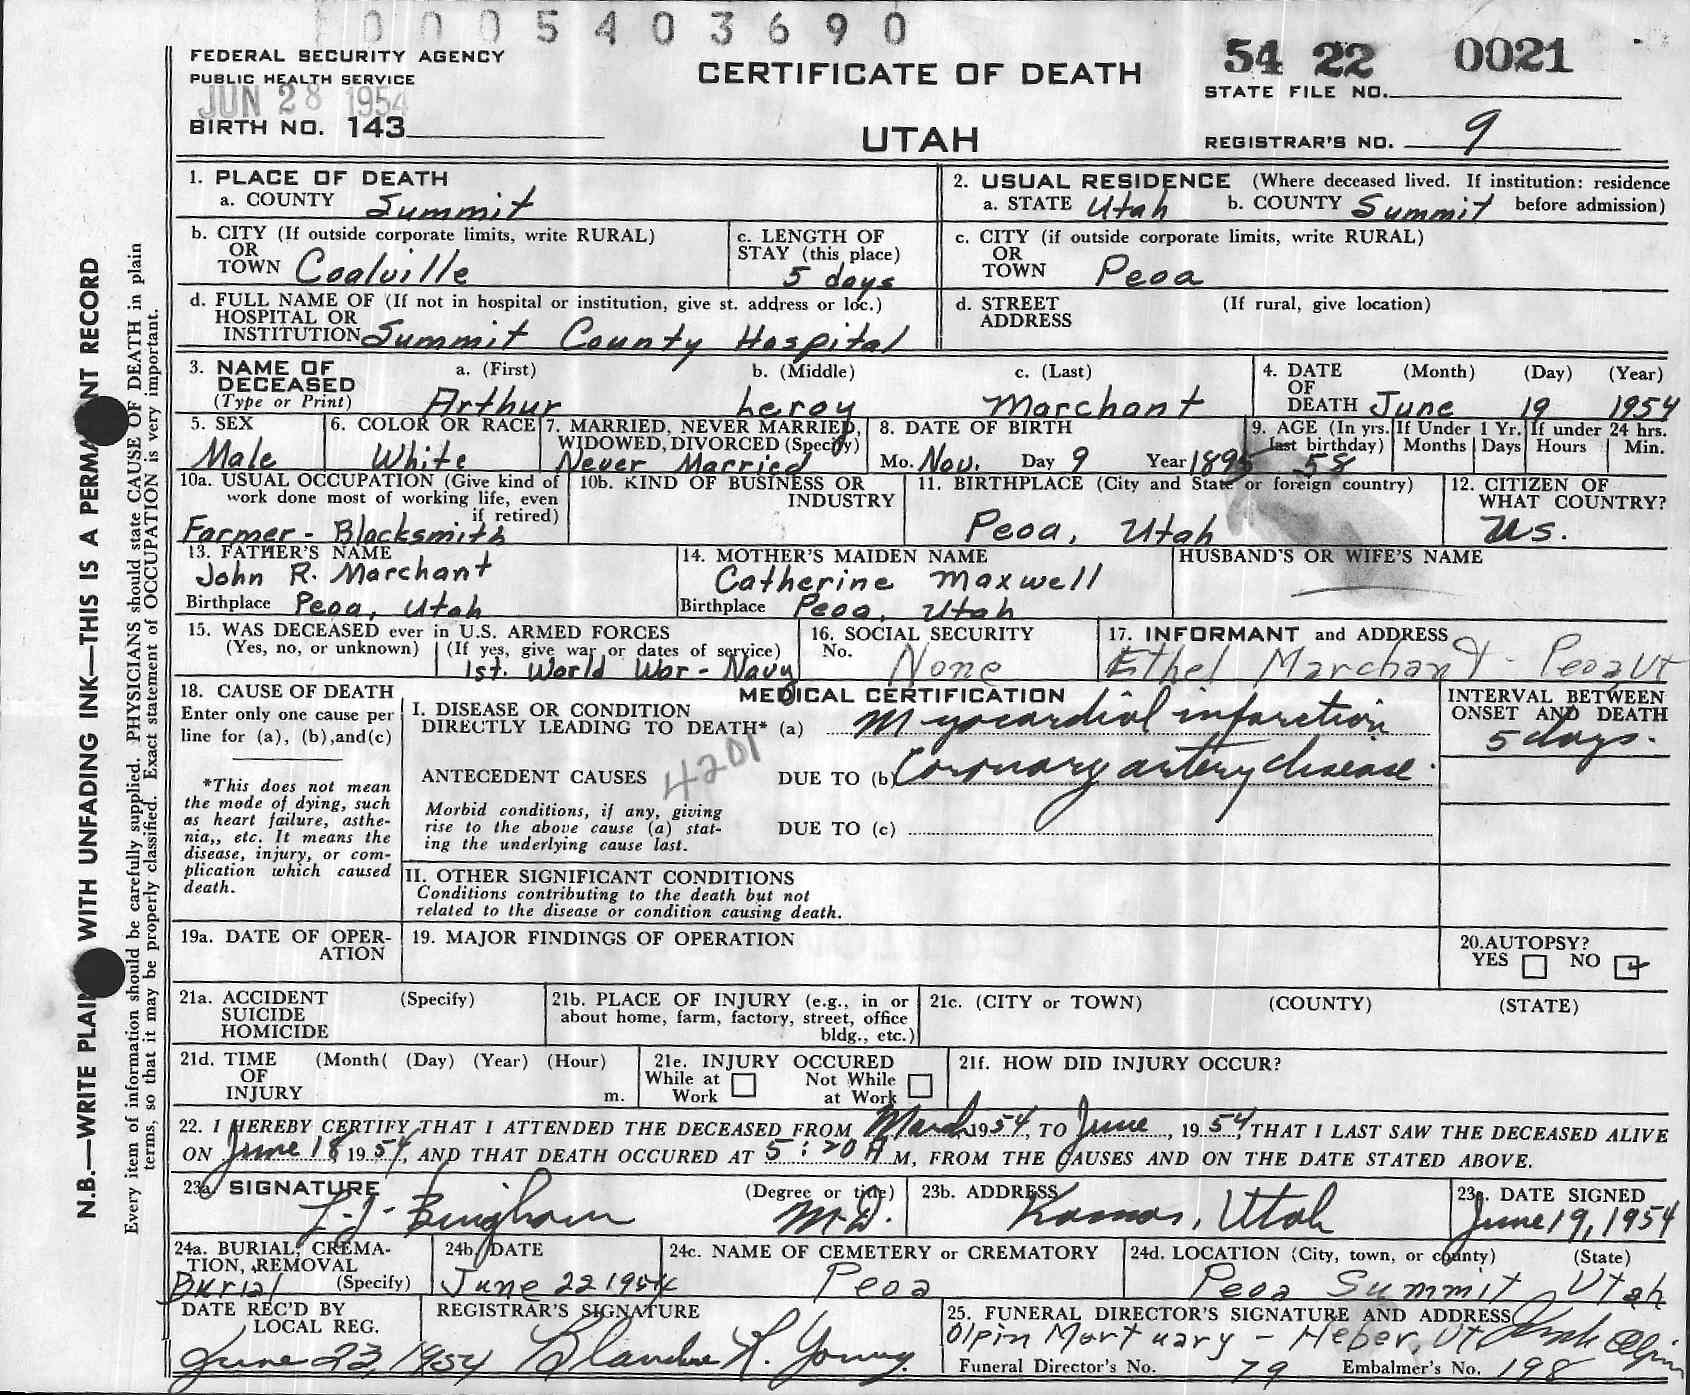 0005403690
FEDERAL SECURITY AGENCY
PUBLIC HEALTH SERVICE
JUN 28 1954
BIRTH NO. 143
CERTIFICATE OF DEATH
UTAH
54 22 0021
STATE FILE NO.
REGISTRAR'S NO. 9
N.B.—WRITE PLAIN WITH UNFADING INK—THIS IS A PERMA NT RECORD
Every item of information should be carefully supplied. PHYSICIANS should state CAUSE OF DEATH in plain
terms, so that it may be properly classified. Exact statement of OCCUPATION is very important.
1. PLACE OF DEATH
a. COUNTY Summit
2. USUAL RESIDENCE (Where deceased lived. If institution: residence
a. STATE Utah b. COUNTY Summit before admission)
b. CITY (If outside corporate limits, write RURAL)
OR
TOWN Coalville
c. LENGTH OF
STAY (this place)
5 days
c. CITY (if outside corporate limits, write RURAL)
OR
TOWN Peoa
d. FULL NAME OF (If not in hospital or institution, give st. address or loc.)
HOSPITAL OR
INSTITUTION Summit County Hospital
d. STREET (If rural, give location)
ADDRESS
3. NAME OF a. (First) b. (Middle) c. (Last)
DECEASED
(Type or Print) Arthur Leroy Marchant
4. DATE (Month) (Day) (Year)
OF
DEATH June 19 1954
5. SEX
Male
6. COLOR OR RACE
White
7. MARRIED, NEVER MARRIED,
WIDOWED, DIVORCED (Specify)
Never Married
8. DATE OF BIRTH
Mo. Nov. Day 9 Year 1895
9. AGE (In yrs.
last birthday)
58
If Under 1 Yr.
Months Days
If under 24 hrs.
Hours Min.
10a. USUAL OCCUPATION (Give kind of
work done most of working life, even
if retired)
Farmer - Blacksmith
10b. KIND OF BUSINESS OR
INDUSTRY
11. BIRTHPLACE (City and State or foreign country)
Peoa, Utah
12. CITIZEN OF
WHAT COUNTRY?
U.S.
13. FATHER'S NAME
John R. Marchant
Birthplace Peoa, Utah
14. MOTHER'S MAIDEN NAME
Catherine Maxwell
Birthplace Peoa, Utah
HUSBAND'S OR WIFE'S NAME
15. WAS DECEASED ever in U.S. ARMED FORCES
(Yes, no, or unknown) (If yes, give war or dates of service)
1st. World War - Navy
16. SOCIAL SECURITY
No. None
17. INFORMANT and ADDRESS
Ethel Marchant - Peoa Ut
18. CAUSE OF DEATH
Enter only one cause per
line for (a), (b), and(c)
*This does not mean
the mode of dying, such
as heart failure, asthe-
nia,, etc. It means the
disease, injury, or com-
plication which caused
death.
MEDICAL CERTIFICATION
I. DISEASE OR CONDITION
DIRECTLY LEADING TO DEATH* (a) Myocardial infarction
4201
ANTECEDENT CAUSES DUE TO (b) Coronary artery disease.
Morbid conditions, if any, giving
rise to the above cause (a) stat-
ing the underlying cause last.
DUE TO (c)
INTERVAL BETWEEN
ONSET AND DEATH
5 days.
II. OTHER SIGNIFICANT CONDITIONS
Conditions contributing to the death but not
related to the disease or condition causing death.
19a. DATE OF OPER-
ATION
19. MAJOR FINDINGS OF OPERATION
20. AUTOPSY?
YES NO
21a. ACCIDENT (Specify)
SUICIDE
HOMICIDE
21b. PLACE OF INJURY (e.g., in or
about home, farm, factory, street, office
bldg., etc.)
21c. (CITY or TOWN) (COUNTY) (STATE)
21d. TIME (Month( (Day) (Year) (Hour)
OF
INJURY m.
21e. INJURY OCCURED
While at Not While
Work at Work
21f. HOW DID INJURY OCCUR?
22. I HEREBY CERTIFY THAT I ATTENDED THE DECEASED FROM March 1954, TO June, 1954, THAT I LAST SAW THE DECEASED ALIVE
ON June 18 1954, AND THAT DEATH OCCURED AT 5:20 A M, FROM THE CAUSES AND ON THE DATE STATED ABOVE.
23a. SIGNATURE (Degree or title)
Bingham M.D.
23b. ADDRESS
Kamas, Utah
23c. DATE SIGNED
June 19, 1954
24a. BURIAL, CREMA-
TION, REMOVAL
Burial (Specify)
24b. DATE
June 22 1954
24c. NAME OF CEMETERY or CREMATORY
Peoa
24d. LOCATION (City, town, or county) (State)
Peoa Summit Utah
DATE REC'D BY
LOCAL REG.
June 23, 1954
REGISTRAR'S SIGNATURE
Blanche R. Young
25. FUNERAL DIRECTOR'S SIGNATURE AND ADDRESS
Olpin Mortuary - Heber, Ut. Olpin
Funeral Director's No. 79 Embalmer's No. 198